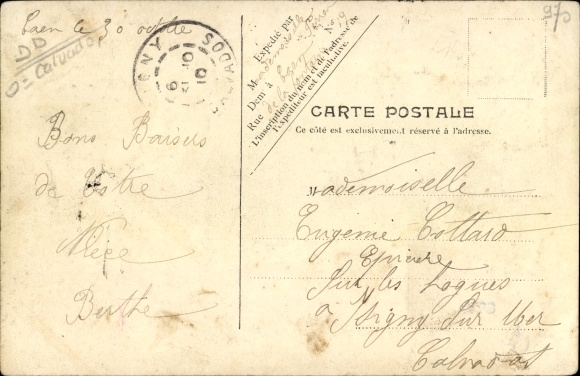 Caen le 30 octobre
DD
0 = Calvados
Bons Baisers
de Votre
Nièce
Berthe
CALVADOS
Expédié par
M ademoiselle
Dem à Caen
Rue de la
N° 19
L'inscription du nom et de l'adresse de
l'expéditeur est facultative.
CARTE POSTALE
Ce côté est exclusivement réservé à l'adresse.
Mademoiselle
Eugenie Cottard
Epicière
Sur les Logues
a Isigny Sur Mer
Calvados